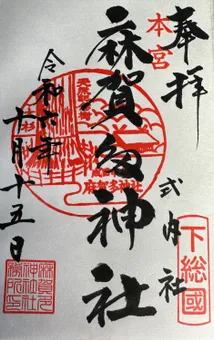 奉拝
本宮
式内社
下総國
麻賀多神社
令和六年
十一月十五日
麻賀多神社
麻賀多
神社社
務所印